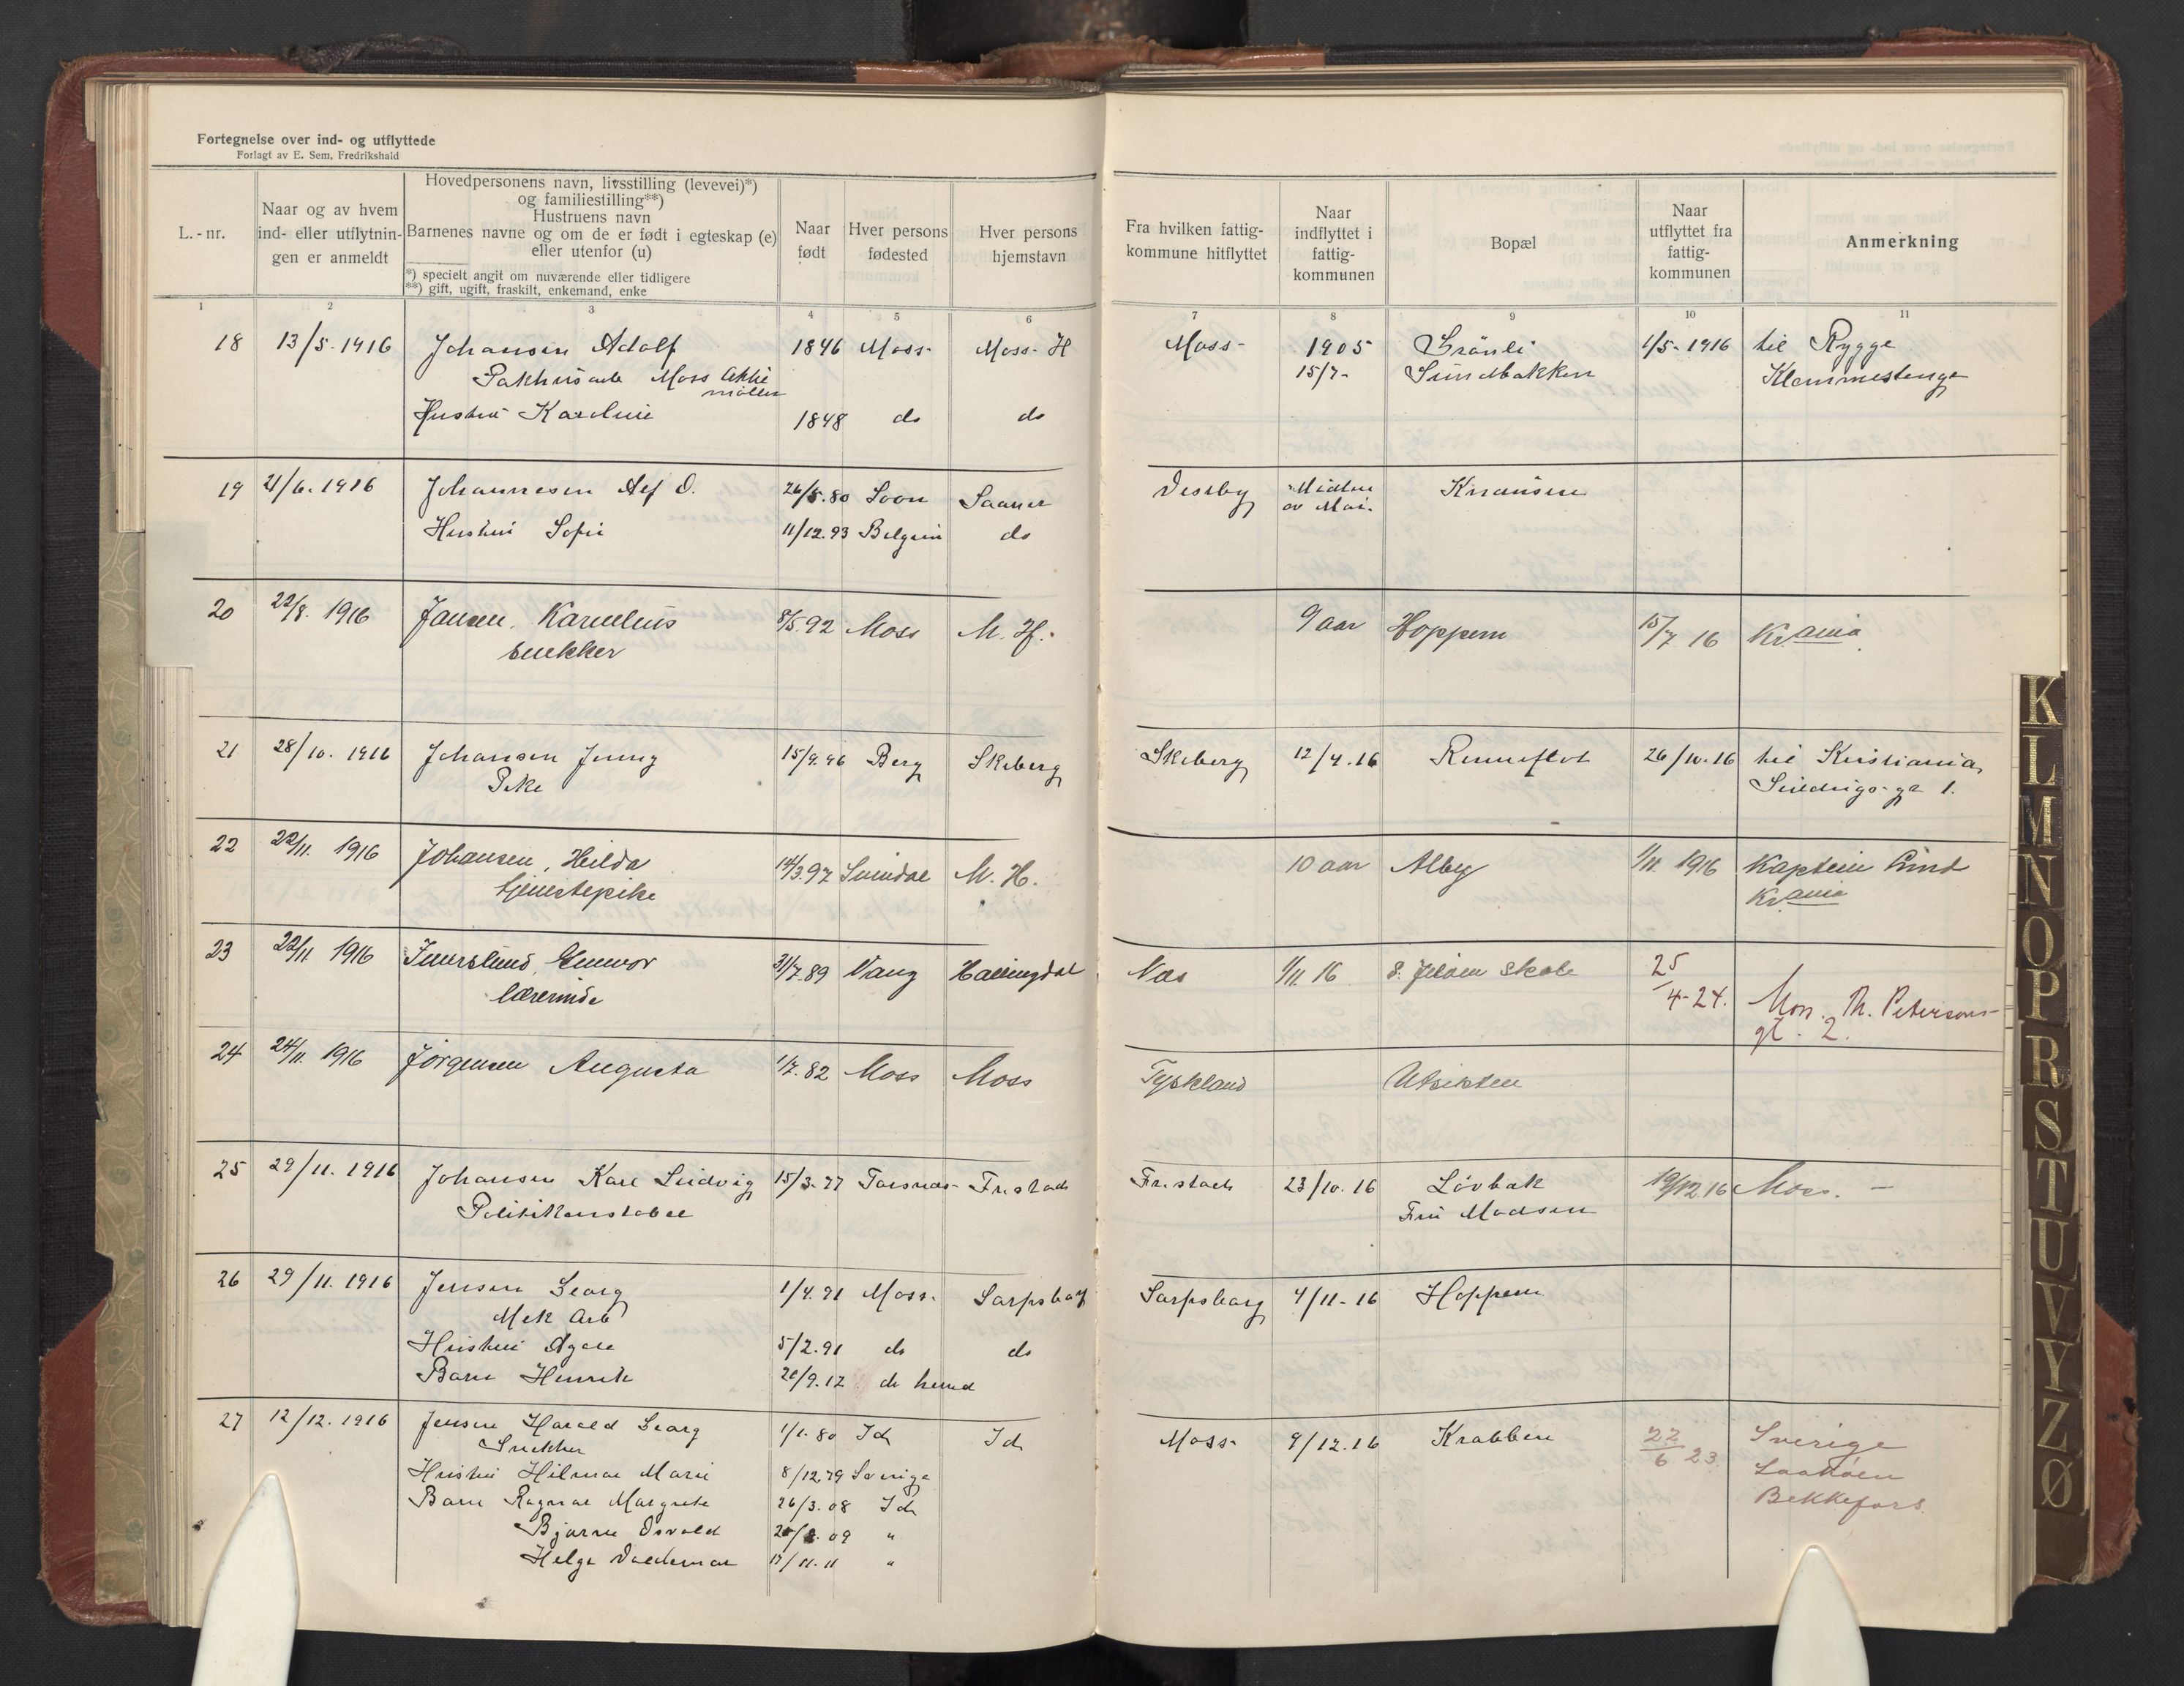 Fortegnelse over ind- og utflyttede
Forlagt av E. Sem, Fredrikshald
L.-nr.
Naar og av hvem
ind- eller utflytnin-
gen er anmeldt
Hovedpersonens navn, livsstilling (levevei)*)
og familiestilling**)
Hustruens navn
Barnenes navne og om de er født i egteskap (e)
eller utenfor (u)
*) specielt angit om nuværende eller tidligere
**) gift, ugift, fraskilt, enkemand, enke
Naar
født
Hver persons
fødested
Hver persons
hjemstavn
Fra hvilken fattig-
kommune hitflyttet
Naar
indflyttet i
fattig-
kommunen
Bopæl
Naar
utflyttet fra
fattig-
kommunen
Anmerkning
1 2 3 4 5 6 7 8 9 10 11
18 13/5. 1916 Johansen Adolf 1846 Moss- Moss-H Moss- 1905 Grönli 1/5-1916 til Rygge
Pakhusarb Moss Aktie 15/7- Sundbakken
möller Klommestenge
Hustru Karoline 1848 do do
19 21/6. 1916 Johannesen Alf O. 26/5.80 Soon Saaner Vestby Midten Knausen
av Mai.
Hustru Sofie 11/12.93 Belgien do
20 22/8. 1916 Jansen, Karnelius 8/5.92 Moss M. H. 9 aar Hoppern 15/7 16 Kr.ania
snekker
21 28/10. 1916 Johansen Jenny 15/9.96 Berg Skeberg Skeberg 12/4.16 Renneflot 26/10.16 til Kristiania
Pike
22 22/11. 1916 Johansen, Hilda 14/3.97 Svindal M. H. 10 aar Alby 1/11. 1916 Kaptein Lind
tjenestepike Krania
23 22/11 1916 Gunvor 31/7.89 Vang Hallingdal Næs 1/11 16 S. Jeløen skole 25
lærerinde 4-24. Th. Petersons-
gt. 2.
24 24/11. 1916 Jörgensen Augusta 1/7.82 Moss Moss Tyskland Utsikten
25 29/11. 1916 Johansen Karl Ludvig 15/3.77 Torsnes- Fr.stad Fr.stad 23/10.16 Lövbak 19/12.16 Moss. -
Politikonstabel Fru Madsen
26 29/11. 1916 Jensen Georg 1/4.91 Moss. Sarpsborg Sarpsborg 4/11-16 Hoppern
Mek Arb
Hustru Agda 5/2.91 do do
Barn Henrik 20/9.12 do
27 12/12. 1916 Jensen Harald Georg 1/1.80 Id Id Moss- 9/12.16 Krabben 22/6 23 Sverige
Snekker
Hustru Hilma Marie 8/12.79 Sverige
Barn Ragna Margrete 26/3.08 Id Bekkefors.
Bjarne Osvald 09 "
Helge Valdemar 11.11 "
K
L
M
N
O
P
R
S
T
U
V
Y
Z
Ø